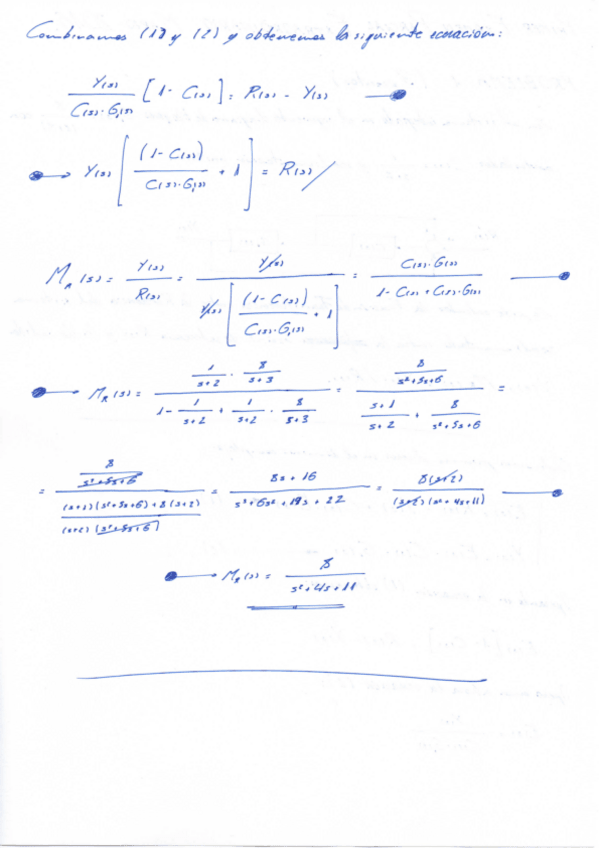 Combinamos (1) y (2) y obtenemos la siguiente ecuación:
Y(s) / (C(s)·G(s)) [1 - C(s)] = R(s) - Y(s)
Y(s) [ (1 - C(s)) / (C(s)·G(s)) + 1 ] = R(s)
M_R(s) = Y(s) / R(s) = Y(s) / ( Y(s) [ (1 - C(s)) / (C(s)·G(s)) + 1 ] ) = C(s)·G(s) / (1 - C(s) + C(s)·G(s))
M_R(s) = ( 1/(s+2) · 8/(s+3) ) / ( 1 - 1/(s+2) + 1/(s+2) · 8/(s+3) ) = ( 8/(s²+5s+6) ) / ( (s+1)/(s+2) + 8/(s²+5s+6) ) =
= ( 8/(s²+5s+6) ) / ( ((s+1)(s²+5s+6) + 8(s+2)) / ((s+2)(s²+5s+6)) ) = (8s + 16) / (s³ + 6s² + 19s + 22) = 8(s+2) / ((s+2)(s²+4s+11))
M_R(s) = 8 / (s²+4s+11)